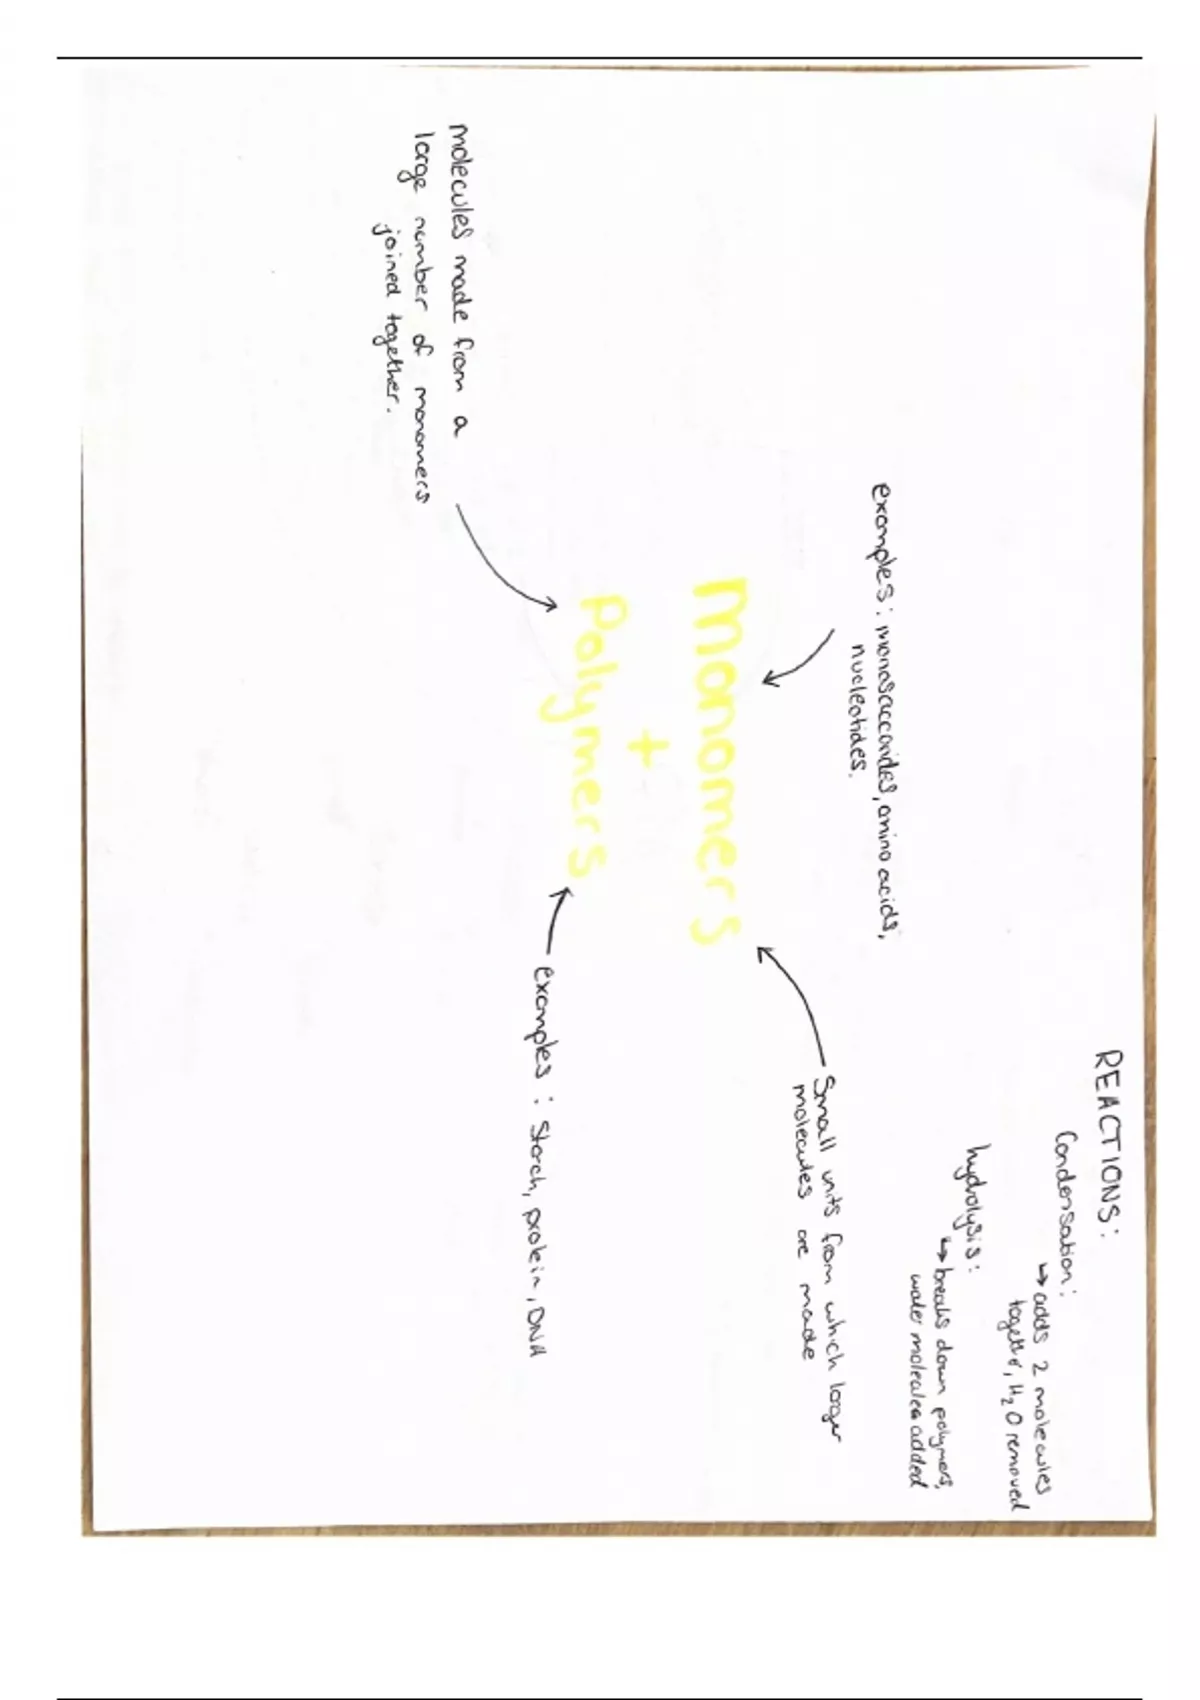 REACTIONS:
Condensation:
↳ adds 2 molecules
together, H₂O removed
hydrolysis:
↳ breaks down polymers,
water molecules added
examples: monosaccarides, amino acids,
nucleotides.
Small units from which larger
molecules are made
Monomers
+
Polymers
molecules made from a
large number of monomers
joined together.
examples: Starch, protein, DNA